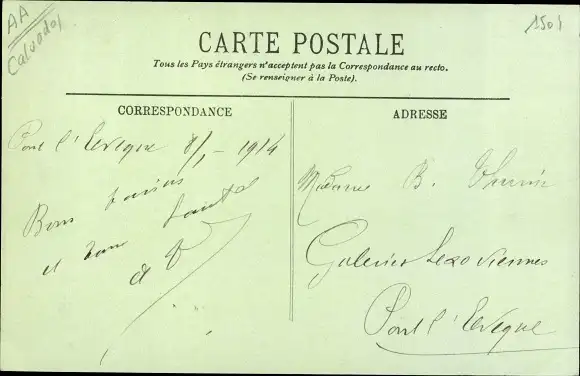 AA
Calvados
1501
CARTE POSTALE
Tous les Pays étrangers n'acceptent pas la Correspondance au recto.
(Se renseigner à la Poste).
CORRESPONDANCE
Pont l'Eveque 8/1 - 1914
Bons baisers
et bonne santé
ADRESSE
Madame B.
Galeries Lexoviennes
Pont l'Eveque